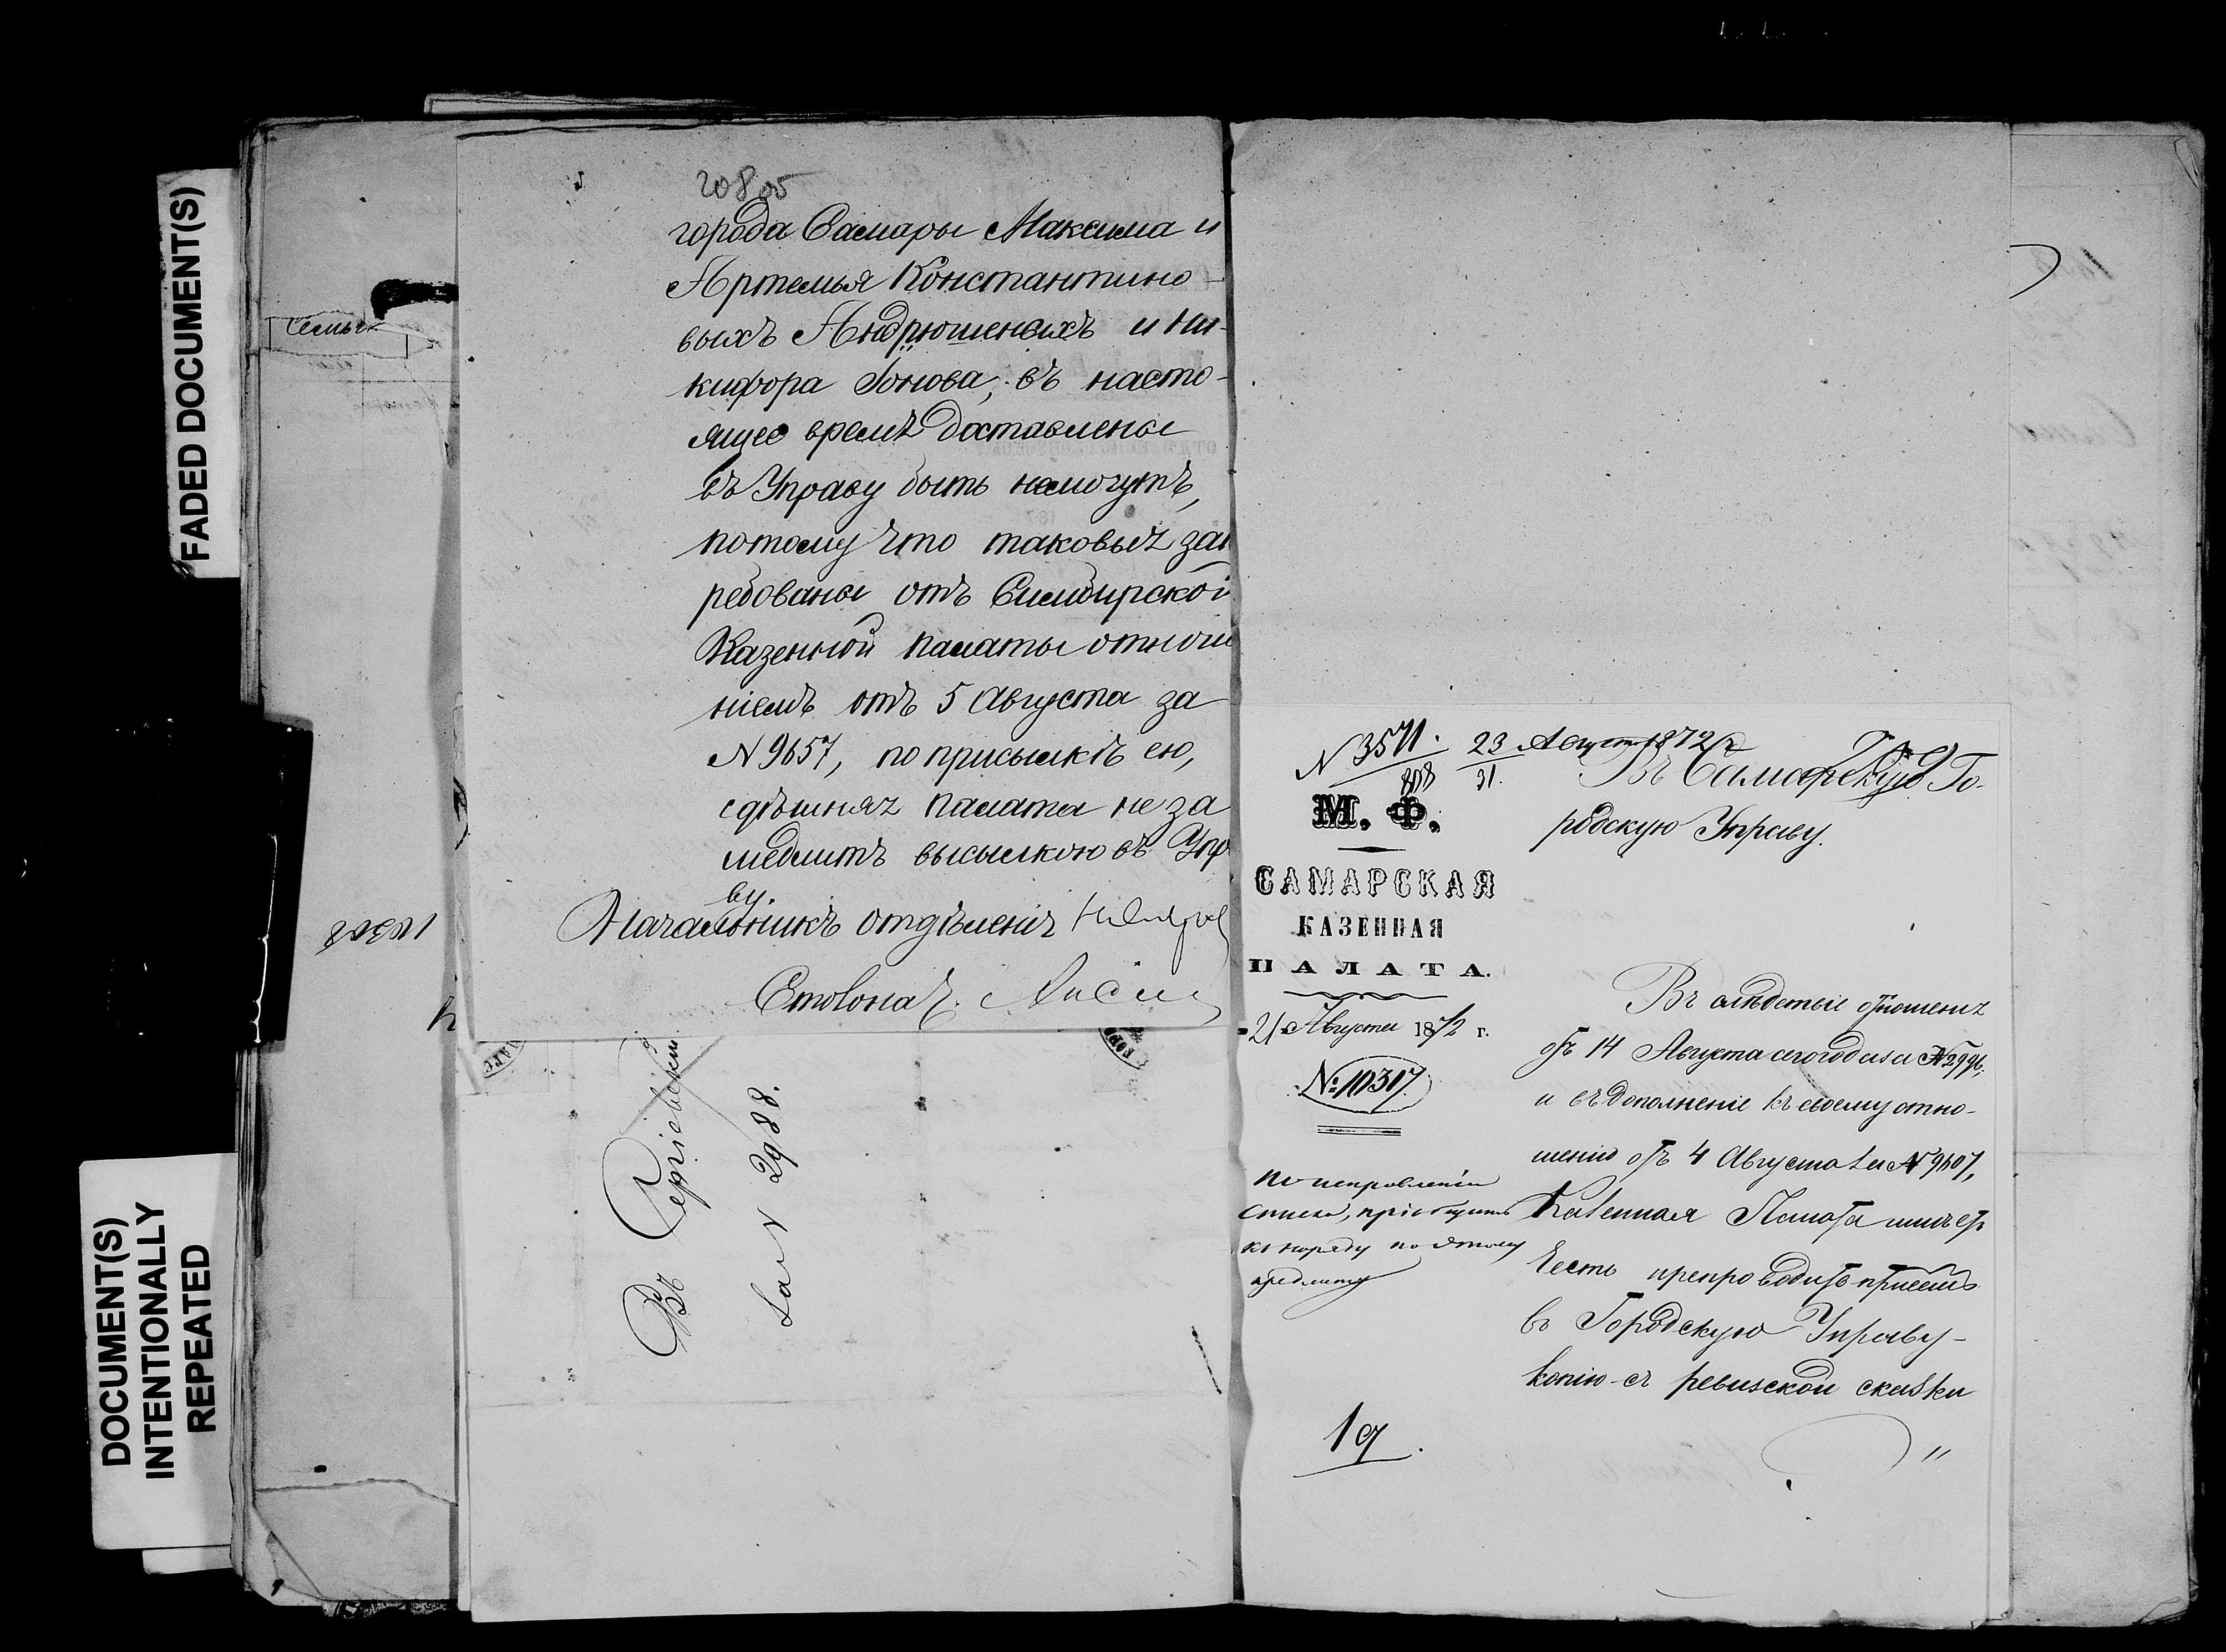 FADED DOCUMENT(S)
DOCUMENT(S)
INTENTIONALLY
REPEATED
семьи
20805
города Самары Максима и
Артемья Константино-
выхъ Андрюшеныхъ и Ни-
кифора Іонова, въ насто-
ящее время доставлены
въ Управу быть немогутъ,
потому что таковыя зат
ребованы отъ Симбирской
Казенной палаты отноше
ніемъ отъ 5 Августа за
N 9657, по присылкѣ ею,
сдѣшняя палата не за
медлитъ высылкою въ Упра
ву.
Начальникъ отдѣленія
Столонач.
Въ
за N 2988.
N 3571. 23 Августа 1872 г
31.
Въ Самарскую Го-
родскую Управу.
М. Ф.
САМАРСКАЯ
КАЗЕННАЯ
ПАЛАТА.
21 Августа 1872 г.
№ 10317
По исправленіи
списка, пріобщить
къ наряду по этому
предмету
Въ слѣдствіе отношенія
отъ 14 Августа сего года за N 2996,
и въ дополненіе къ своему отно-
шенію отъ 4 Августа за N 9607,
Казенная Палата имѣетъ
честь препроводить при семъ
въ Городскую Управу
копію съ ревизской сказки
19.